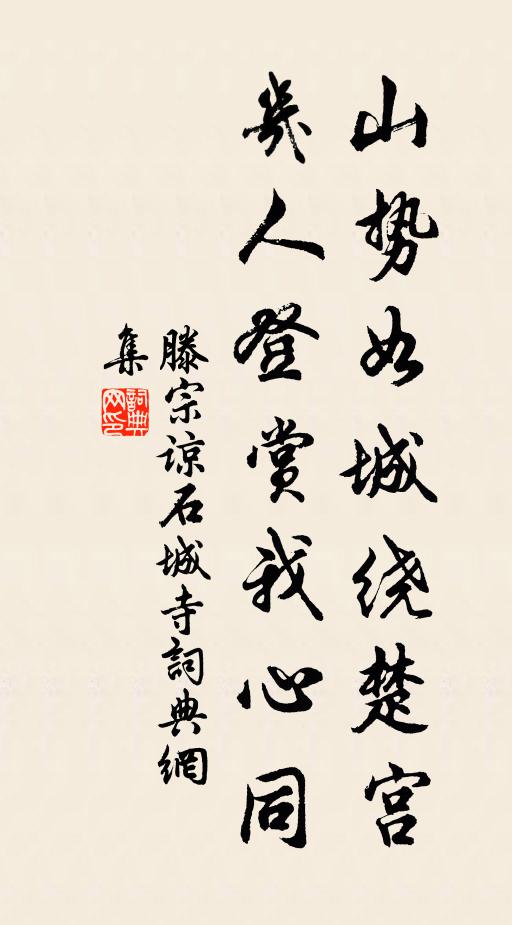 山势如城绕楚宫
几人登赏我心同
滕宗谅石城寺詞典網
集
詞典网印